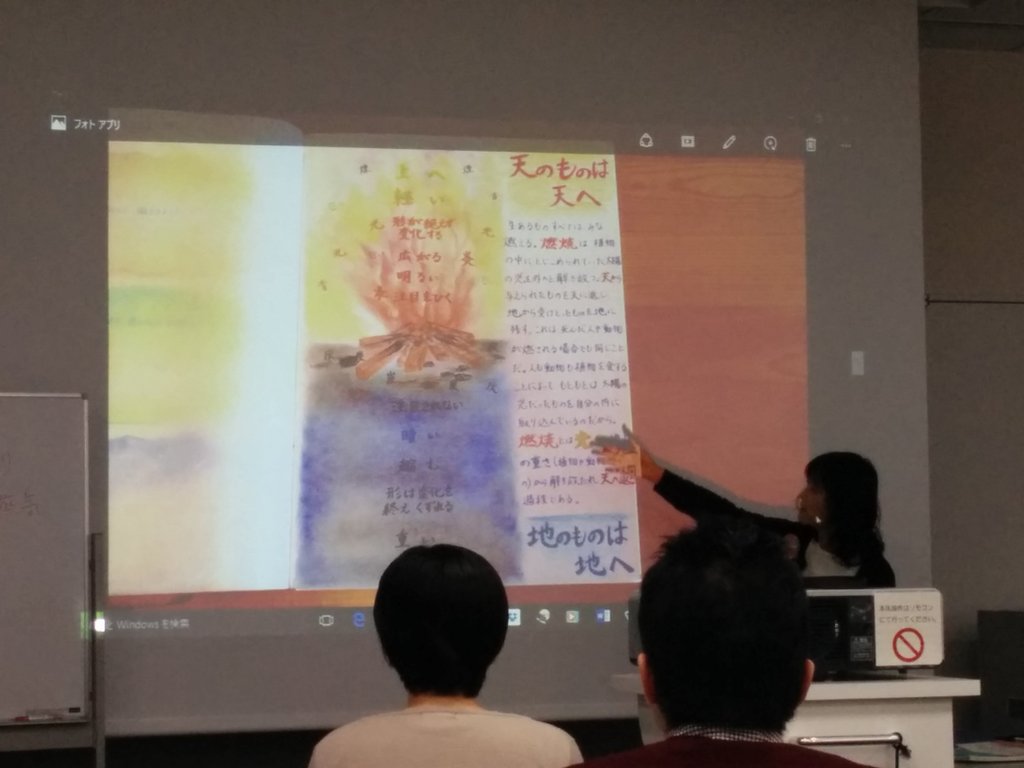 フォト アプリ
天のものは
天へ
上へ
軽い
形が絶対
変化する
広がる
明るい
注目をひく
注目されない
暗い
縮む
形は変化を
終え くずれる
重い
生あるものすべては、みな
燃える。燃焼は植物
の中にとじこめられていた太陽
の光を外へと解き放つ。天から
与えられたものを天に返し
地から受けとったものを地に
残す。これは死んだ人や動物
が燃される場合とも同じこと
だ。人も動物も植物を食する
ことによって もともとは 太陽の
光だったものを自分の内に
取り込んでいるのだから。
燃焼とは
の重さ(植物や動物
の)から解き放たれ 天へ
過程である。
地のものは
地へ
Windows を検索
本丸操作はリモコン
にて行ってください。